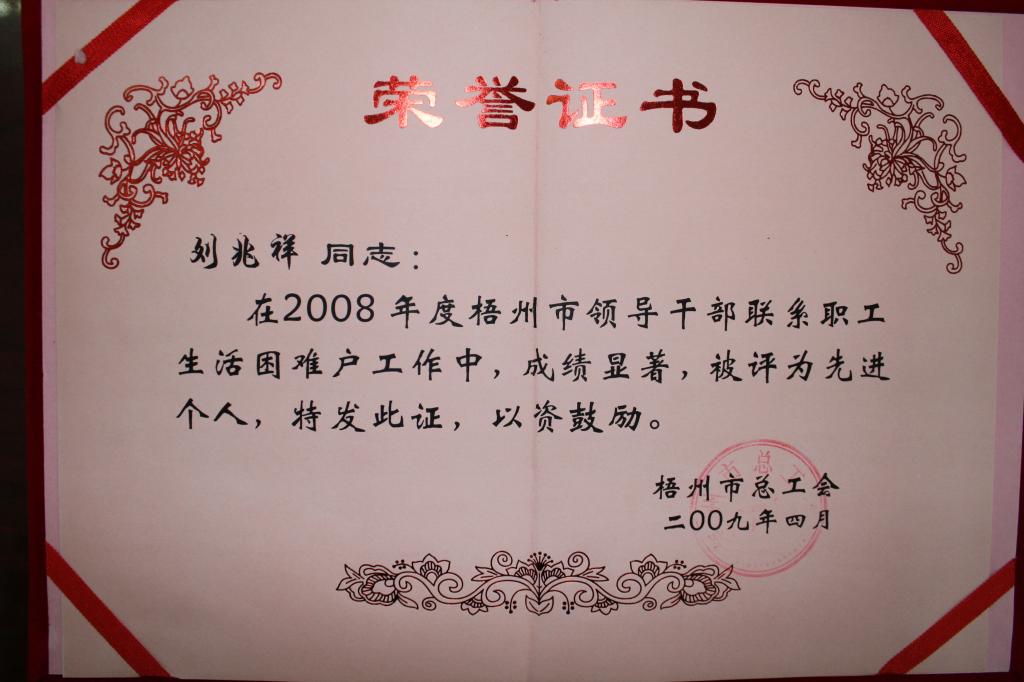 荣誉证书
刘兆祥 同志：
在2008年度梧州市领导干部联系职工
生活困难户工作中，成绩显著，被评为先进
个人，特发此证，以资鼓励。
梧州市总工会
二00九年四月